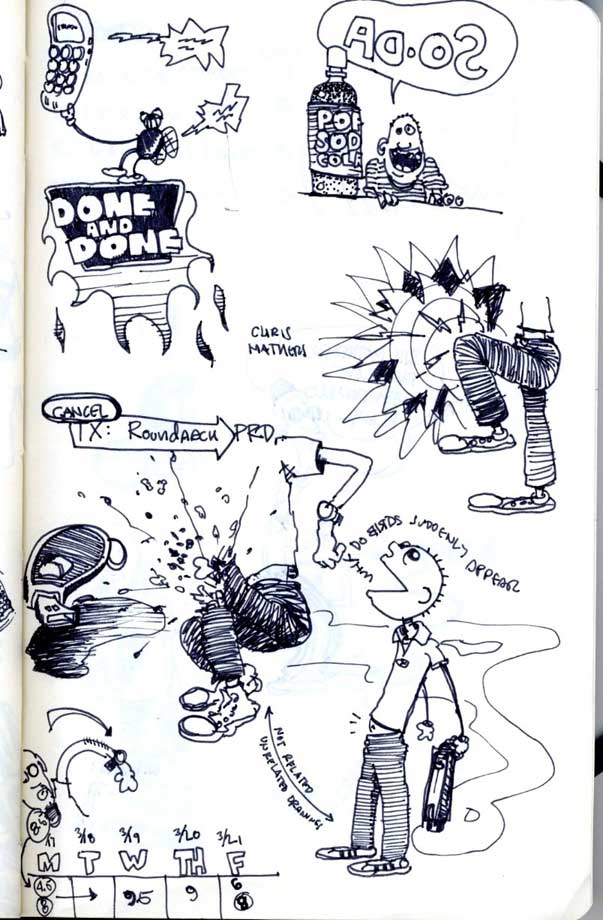 SO·DA
POP
SOD
COLA
DONE
AND
DONE
CHRIS
MATHERS
CANCEL
TX: ROUNDARCH PRD.
WHY DO BIRDS SUDDENLY APPEAR
NOT RELATED
UNRELATED DRAWINGS
3/17 3/18 3/19 3/20 3/21
M T W TH F
4.5 9.5 9 6
8 8